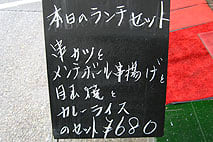 本日のランチセット
串カツと
メンチボール串揚げと
目玉焼と
カレーライス
のセット ¥680